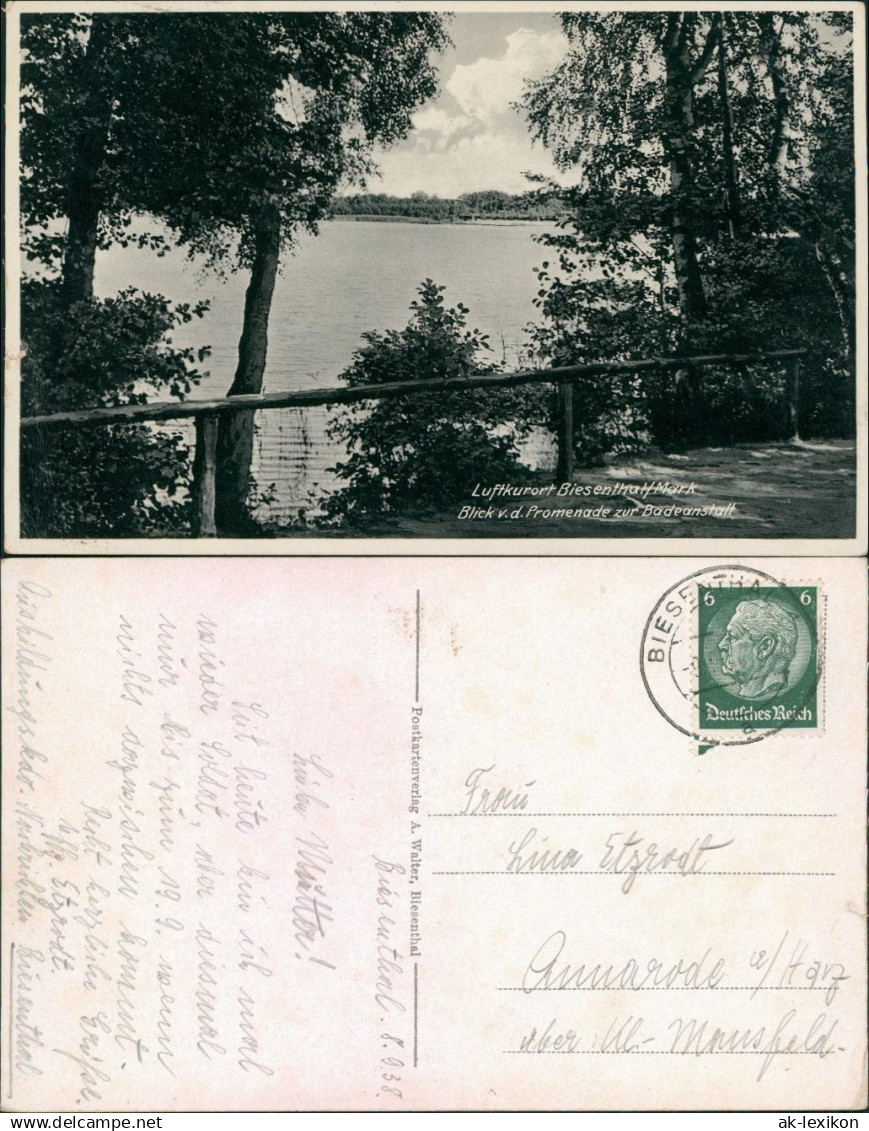 Luftkurort Biesenthal/Mark
Blick v. d. Promenade zur Badeanstalt
BIESENTHA
6 6
Deutsches Reich
Postkartenverlag A. Walter, Biesenthal
Biesenthal. 8.9.38.
Liebe Mutter!
Seit heute bin ich mal
wieder Soldat, aber diesmal
nur bis zum 19.9. wenn
nichts dazwischen kommt.
Recht herzliche Grüße.
Uffz Etzrodt.
Ausbildungskdr. Nachrichten Biesenthal
Frau
Lina Etzrodt
Annarode /Harz
über: Kl.- Mansfeld.
ak-lexikon